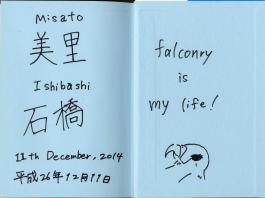 Misato
美里
Ishibashi
石橋
11th December, 2014
平成26年12月11日
falconry
is
my life!